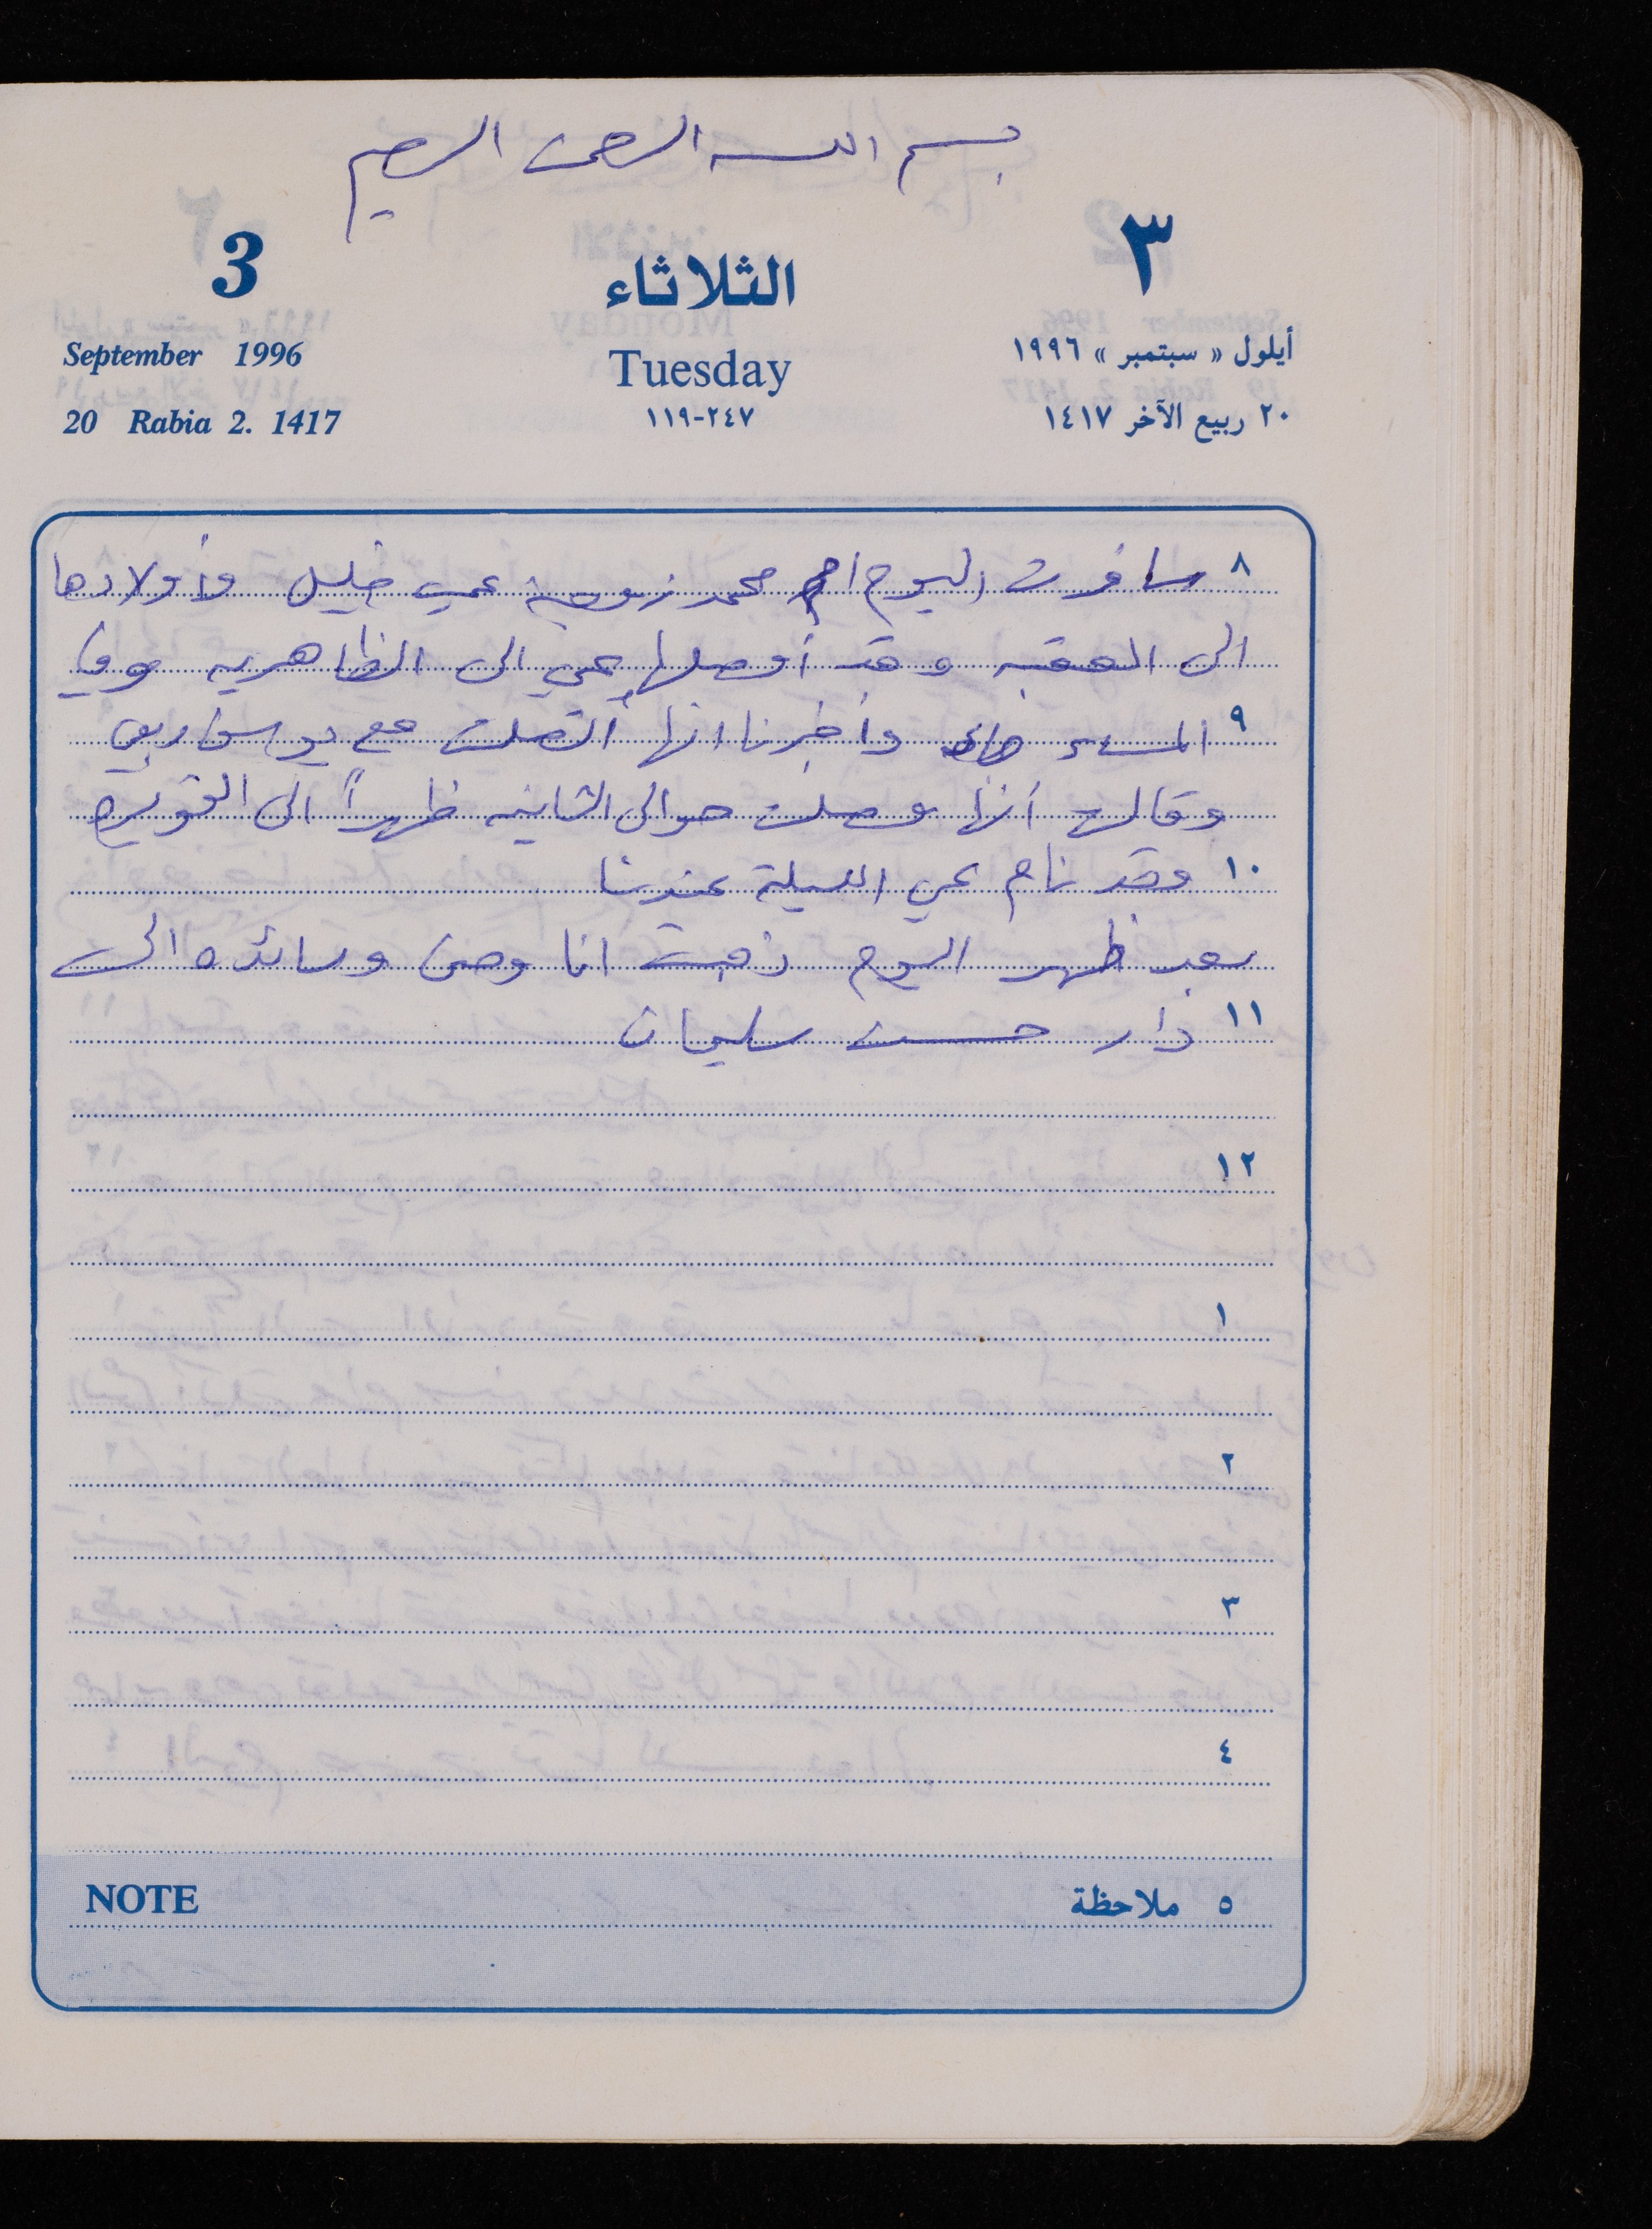 بسم الله الرحمن الرحيم
3 الثلاثاء ٣
September 1996 Tuesday أيلول « سبتمبر » ١٩٩٦
20 Rabia 2. 1417 ٢٤٧-١١٩ ٢٠ ربيع الآخر ١٤١٧
٨ سافرت اليوم ام محمد زوجة عمي خليل وأولادها
الى العقبه وقد أوصلها عمي الى الظاهريه وفي
٩ المساء جاء وأخبرنا انها أتصلت مع
وقالت أنها وصلت حوالى الثانيه ظهراً الى القويره
١٠ وقد نام عمي الليلة عندنا
بعد ظهر اليوم ذهبت انا ومنى وسائده الى
١١ دار حسن سليمان
١٢
١
٢
٣
٤
NOTE ٥ ملاحظة